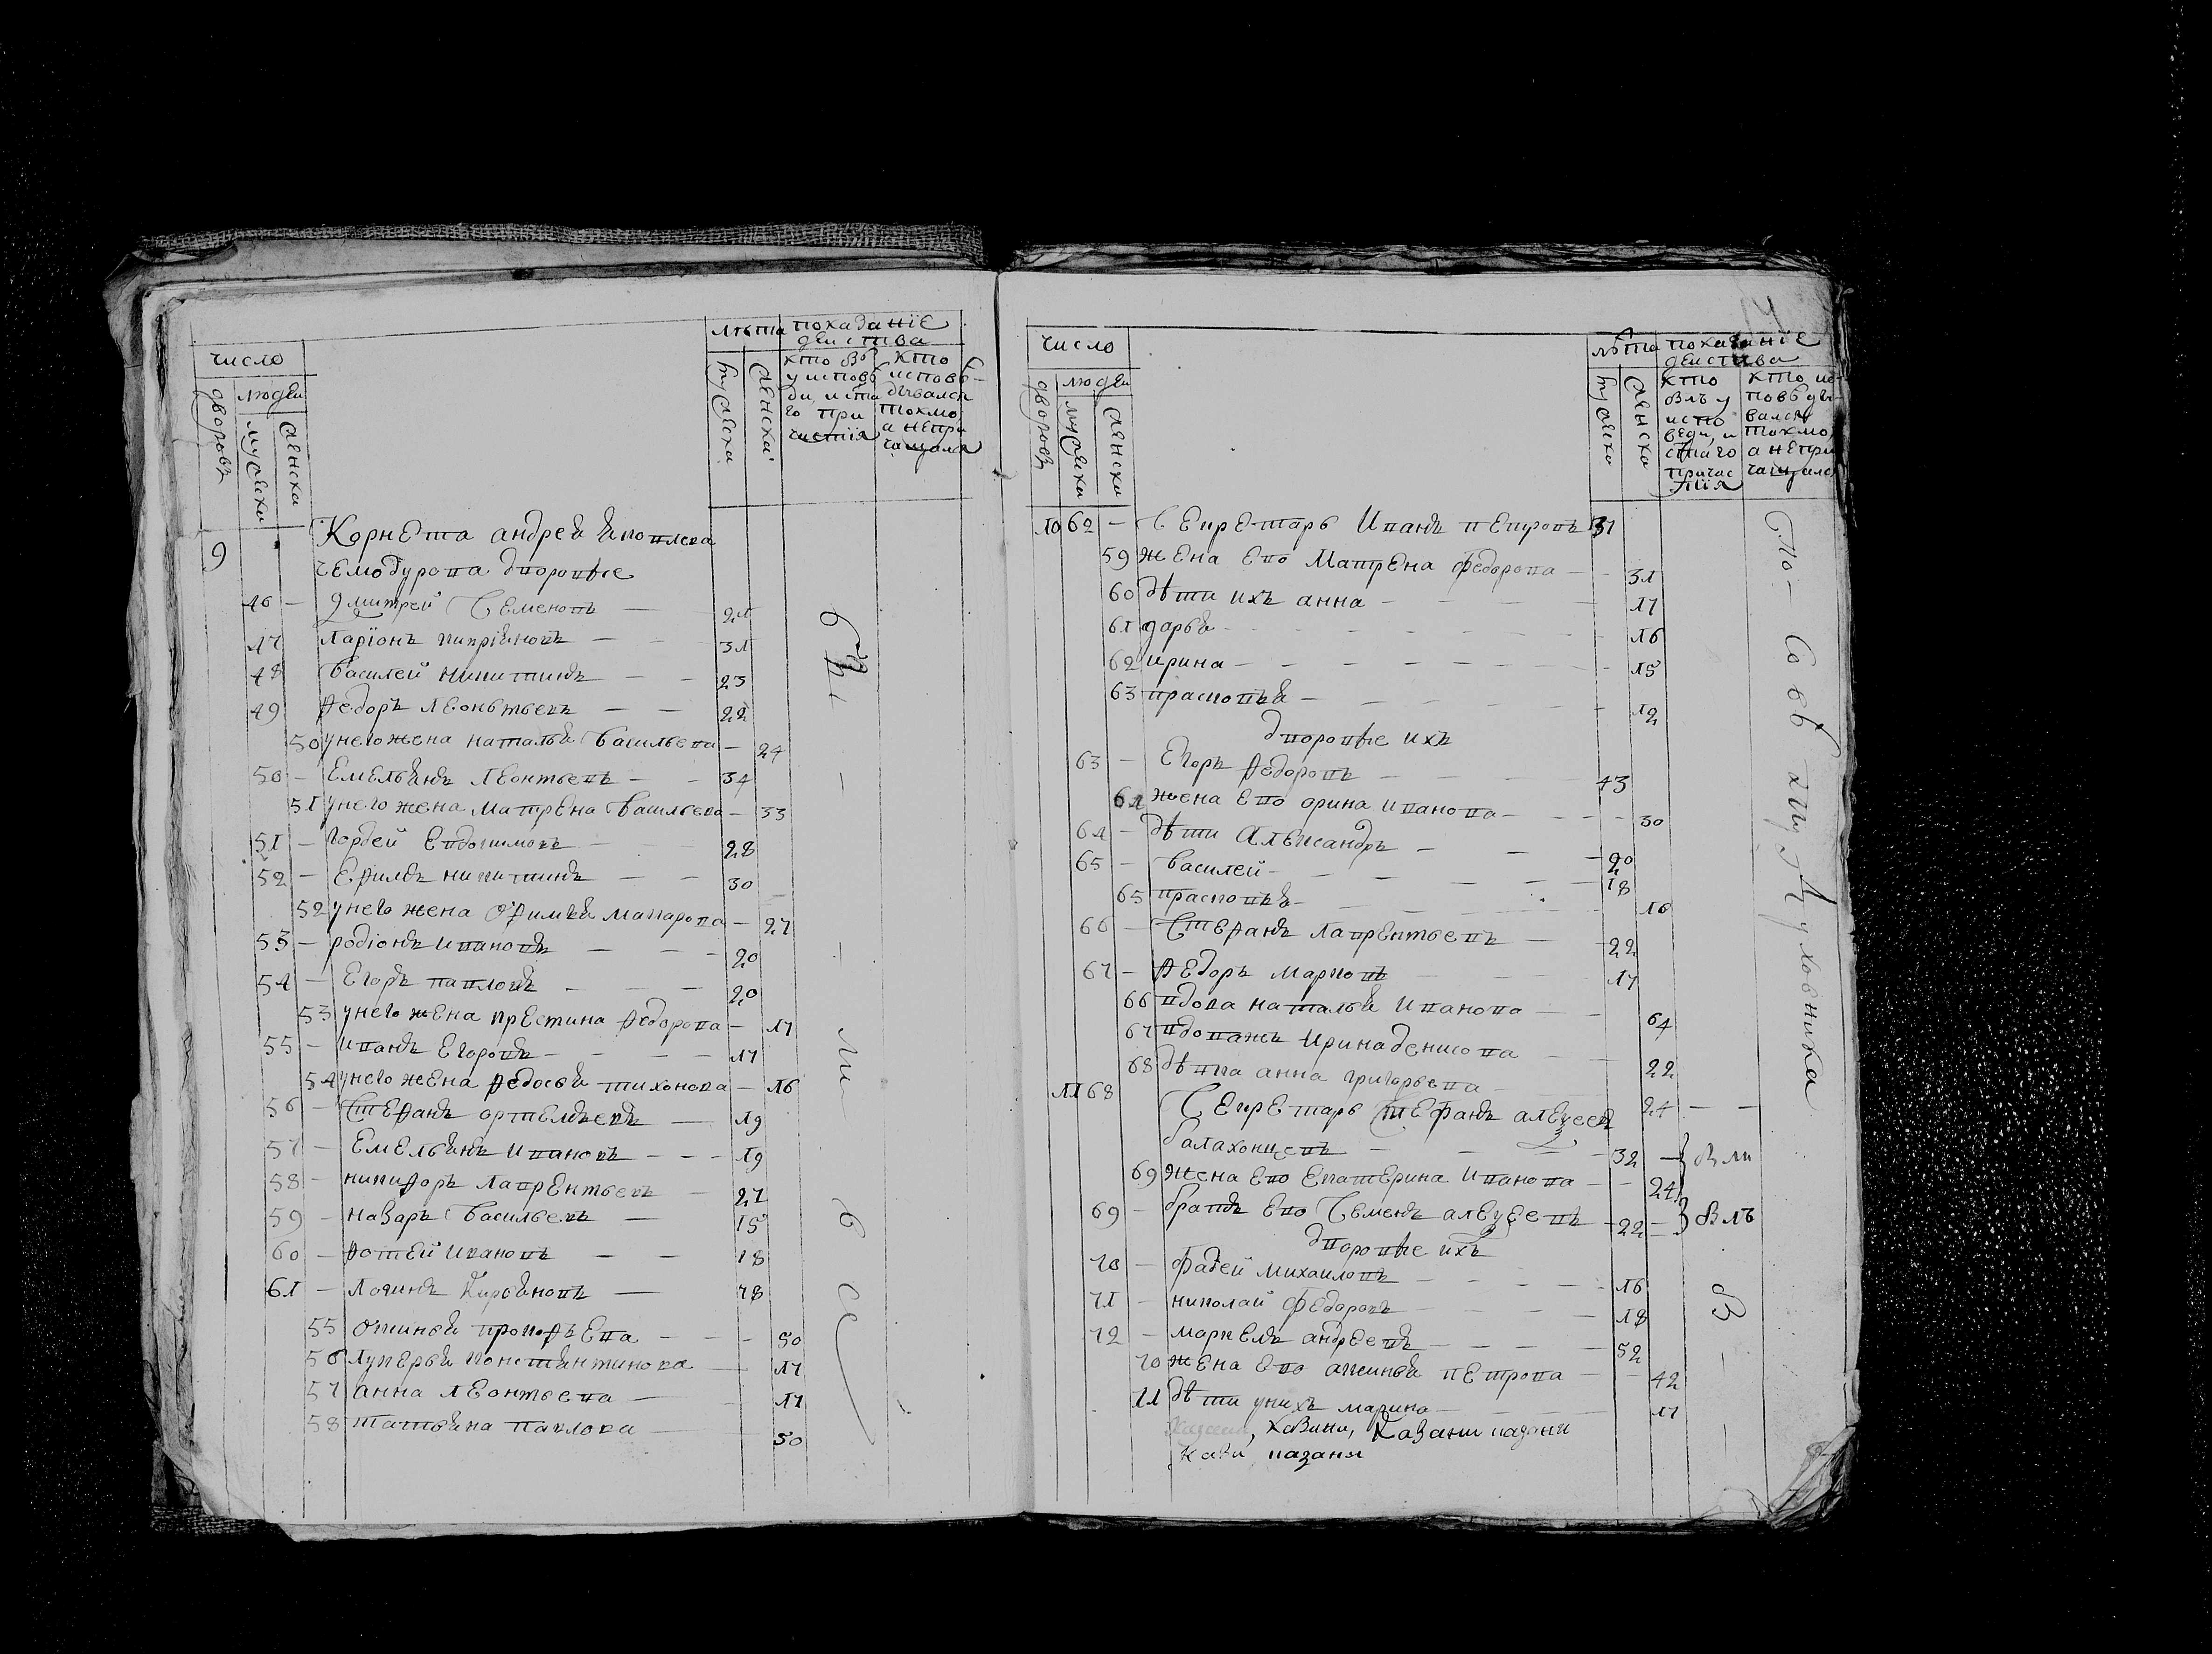 число
лѣта показанїе
действа
людей
дворовъ
мужеска
женска
мужеска
женска
кто въ
у исповѣ
ди, и ста
го при
частїя
кто
исповѣ-
дывался
токмо
а непри
чащался
9 Корнета андрея яковлева
чемодурова дворовые
46 — Дмитрей Семеновъ — 21
17 Ларїонъ киприяновъ — 31
48 Василей никитинъ — 23
49 Федоръ леонтьевъ — 22
50 у него жена наталья Васильева — 24
50 — Емельянъ леонтьевъ — 34
51 у него жена матрена Васильева — 33
51 — гордей Евдокимовъ 28
52 — Ефимъ никитинъ — 30
52 у него жена офимья макарова — 27
53 — родїонъ ивановъ — 20
54 — Егоръ павловъ — 20
53 у него жена крестина федорова — 17
55 — иванъ Егоровъ — 17
54 у него жена федосья тихонова — 16
56 — Стефанъ артемьевъ — 19
57 — Емельянъ ивановъ — 19
58 — никифоръ лаврентьевъ — 27
59 — назаръ Васильевъ — 15
60 — фотей ивановъ — 18
61 — логинъ кирьяновъ — 78
55 аксинья прокофьева — 50
56 лукерья константинова — 17
57 анна леонтьева — 17
58 татьяна павлова — 50
число
лѣта показанїе
действа
людей
дворовъ
мужеска
женска
мужеска
женска
кто
былъ у
испо
веди, и
стаго
причас
тїя
кто ис
повѣды
вался
токмо,
а непри
чащался
10 62 — Секретарь иванъ петровъ 31
59 жена ево матрена федорова — 31
60 дѣти ихъ анна — 17
61 дарья — 16
62 ирина — 15
63 прасковья — 12
дворовые ихъ
63 — Егоръ федоровъ — 43
64 жена ево орина иванова — 30
64 — дѣти александръ — 20
65 — Василей — 18
65 прасковья — 16
66 — Стефанъ лаврентьевъ — 22
67 — федоръ марковъ 17
66 вдова наталья иванова — 64
67 вдоважъ ирина денисова — 22
68 дѣвка анна григорьева — 24 —
11 68 Секретарь стефанъ алексеевъ
балахонцевъ — 32
69 жена ево Екатерина иванова — 24
69 — братъ ево Семенъ алексеевъ — 22 — былъ
дворовые ихъ
70 — фадей михаиловъ — 16
71 — николай федоровъ — 18
72 — маркелъ андреевъ — 52
70 жена ево аксинья петрова — 42
71 дѣти у нихъ марина — 17
казани, Казани казани
казани